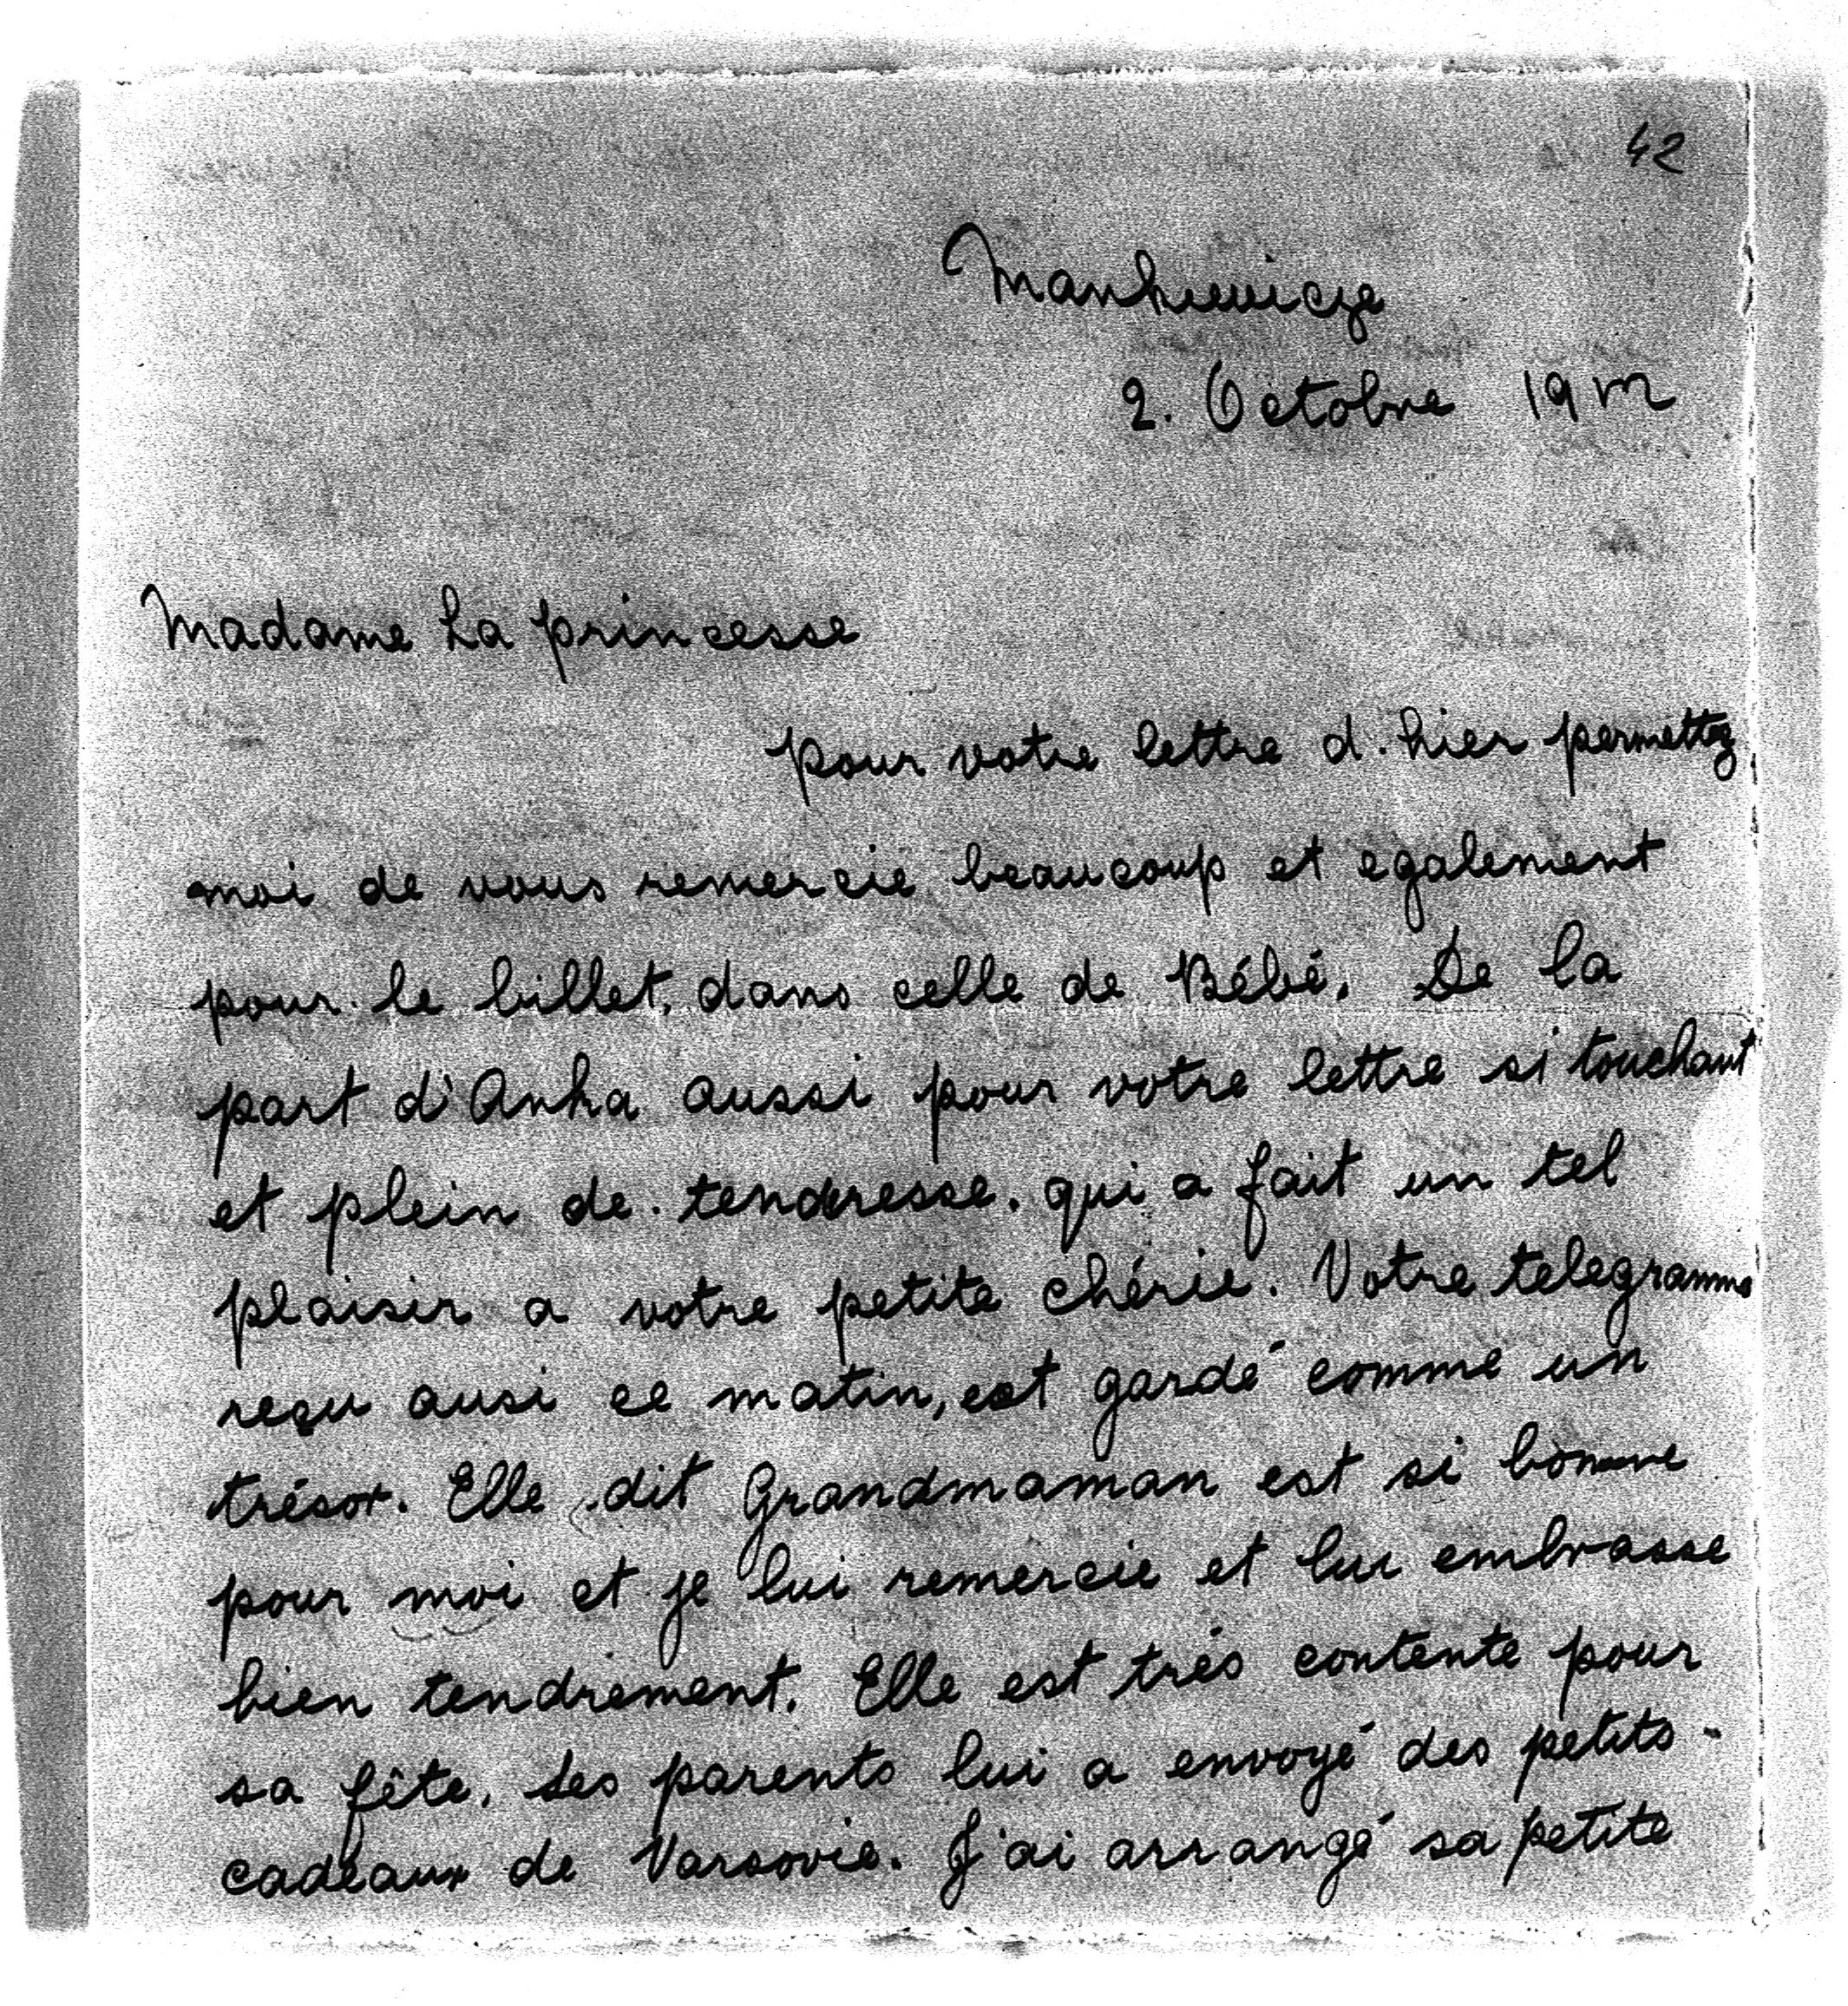 42
Mankiewicze
2. Octobre 19
Madame La princesse
pour votre lettre d. hier permettez
moi de vous remercie beaucoup et egalement
pour le billet, dans celle de Bébé. De la
part d'Anka aussi pour votre lettre si touchant
et plein de tendresse. qui a fait un tel
plaisir a votre petite chérie. Votre telegramme
reçu ausi ce matin, est gardé comme un
trésor. Elle dit Grandmaman est si bonne
pour moi et je lui remercie et lui embrasse
bien tendrement. Elle est très contente pour
sa fête. Les parents lui a envoyé des petits
cadeaux de Varsovie. J'ai arrangé sa petite